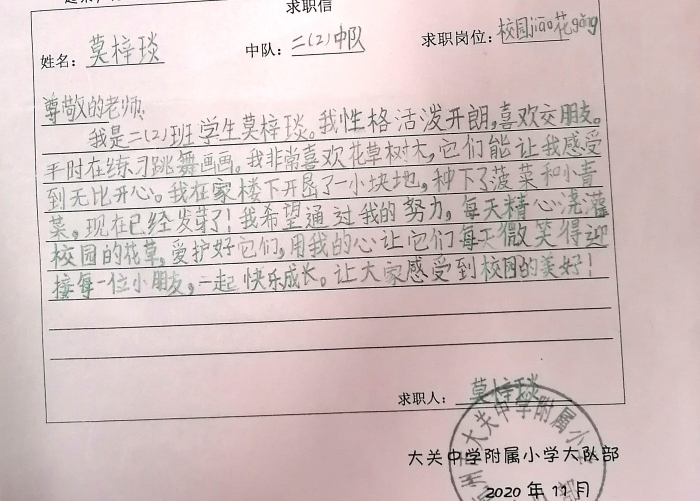 求职信
姓名：莫梓琰 中队：二(2)中队 求职岗位：校园jiāo花gōng
尊敬的老师：
我是二(2)班学生莫梓琰。我性格活泼开朗，喜欢交朋友。
平时在练习跳舞画画。我非常喜欢花草树大，它们能让我感受
到无比开心。我在家楼下开垦了一小块地，种下了菠菜和小青
菜，现在已经发芽了！我希望通过我的努力，每天精心浇灌
校园的花草，爱护好它们，用我的心让它们每天微笑得迎
接每一位小朋友，一起快乐成长。让大家感受到校园的美好！
求职人：莫梓琰
大关中学附属小
大关中学附属小学大队部
2020年11月